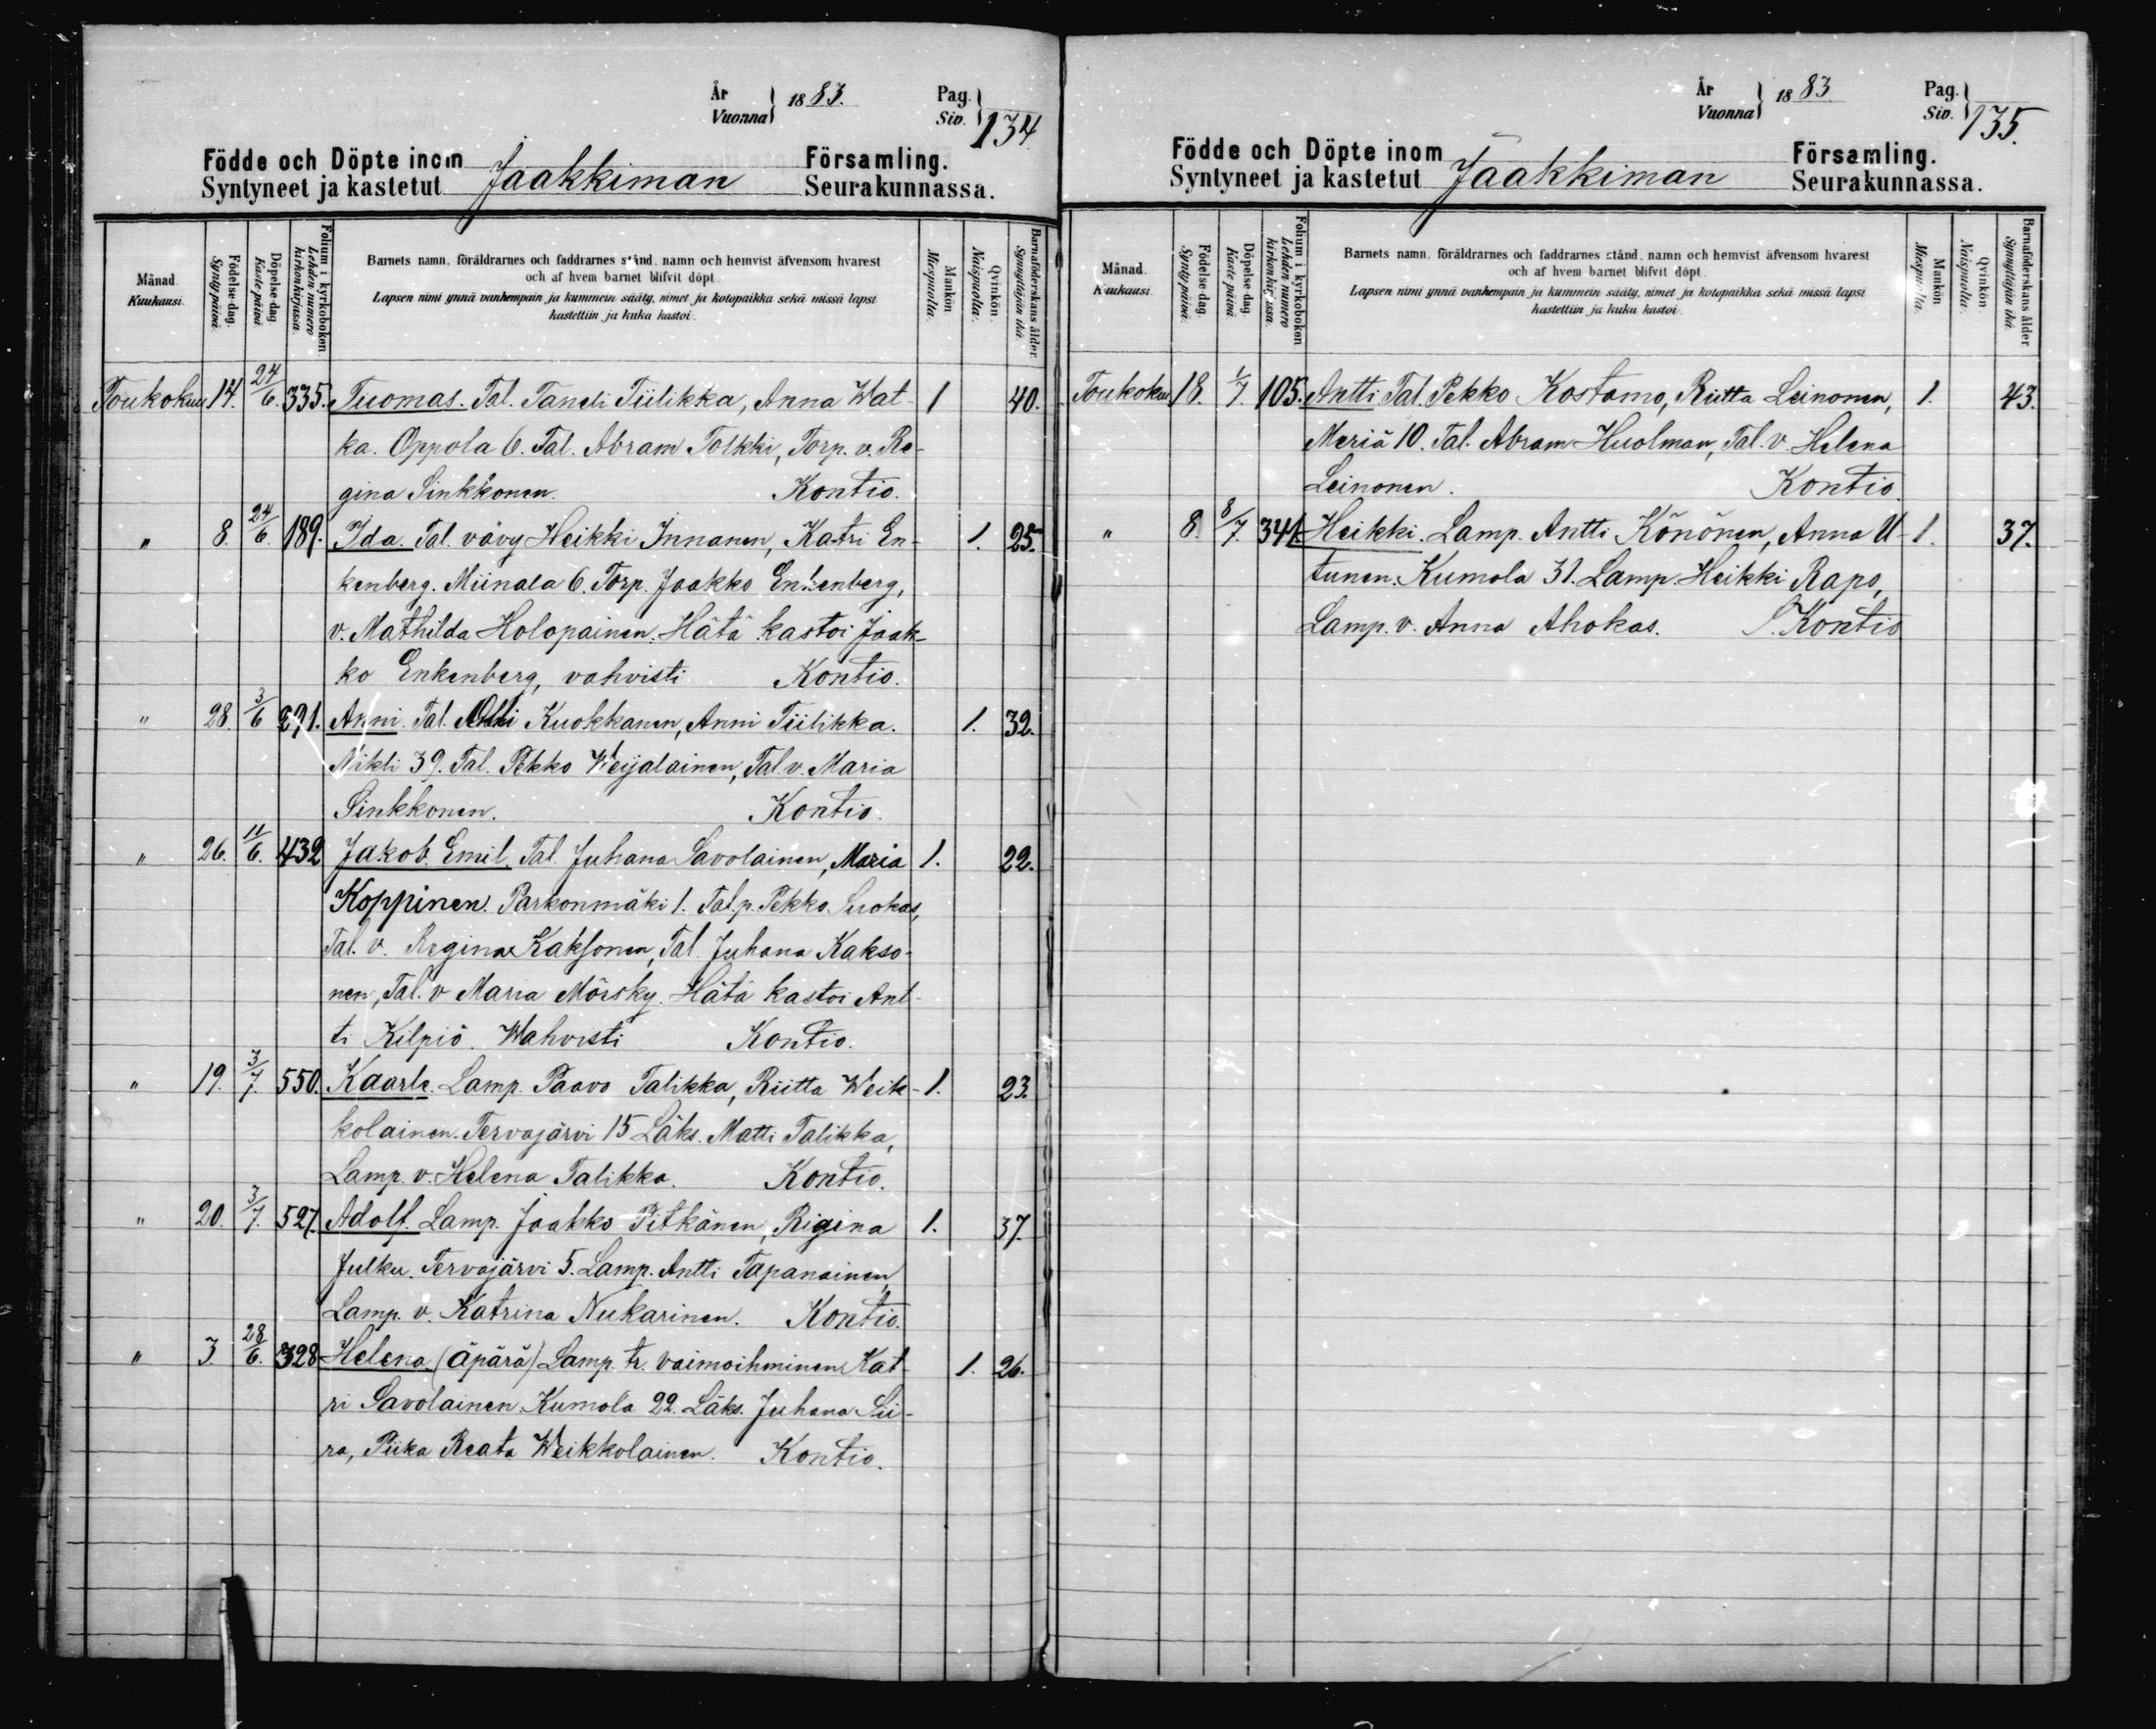 År
Vuonna } 1883.
Pag.
Siv. } 134
Födde och Döpte inom Jaakkiman Församling.
Syntyneet ja kastetut Seurakunnassa.
Månad.
Kuukausi.
Födelse-dag.
Synty päivä.
Döpelse-dag.
Kaste päivä.
Folium i kyrkoboken
Lehden numero
kirkonkirjassa.
Barnets namn, föräldrarnes och faddrarnes stånd, namn och hemvist äfvensom hvarest
och af hvem barnet blifvit döpt.
Lapsen nimi ynnä vanhempain ja kummein sääty, nimet ja kotopaikka sekä missä lapsi
kastettiin ja kuka kastoi.
Mankön
Miespuolta.
Qvinkön.
Naispuolta.
Barnaföderskans ålder.
Synnyttäjän ikä.
Toukokuu 14. 24/6. 335. Tuomas. Tal. Taneli Tiilikka, Anna Wat- 1 40.
ka. Oppola 6. Tal. Abram Tolkki, Torp. v. Re-
gina Sinkkonen. Kontio.
" 8. 24/6. 189. Ida. Tal. vävy Heikki Innanen, Katri En- 1. 25.
kenberg. Miinala 6. Torp. Jaakko Enkenberg,
v. Mathilda Holopainen. Hätä kastoi Jaak-
ko Enkenberg, vahvisti Kontio.
" 28. 3/6 291. Anni. Tal. Olli Kuokkanen, Anni Tiilikka. 1. 32.
Mikli 39. Tal. Pekko Weijalainen, Tal. v. Maria
Sinkkonen. Kontio.
" 26. 11/6. 432 Jakob Emil. Tal. Juhana Savolainen, Maria 1. 22.
Koppinen. Parkonmäki 1. Tal. p. Pekko Suokas,
Tal. v. Regina Kaksonen, Tal. Juhana Kakso-
nen, Tal. v Maria Mörsky. Hätä kastoi Ant-
ti Kilpiö. Wahvisti Kontio.
" 19. 3/7. 550. Kaarle. Lamp. Paavo Talikka, Riitta Weik- 1. 23.
kolainen. Tervajärvi 15 Läks. Matti Talikka,
Lamp. v. Helena Talikka. Kontio.
" 20. 3/7. 527. Adolf. Lamp. Jaakko Pitkänen, Rigina 1. 37.
Julku. Tervajärvi 5. Lamp. Antti Tapanainen,
Lamp. v. Katrina Nukarinen. Kontio.
" 3. 28/6. 328 Helena (äpärä) Lamp. tr. vaimoihminen Kat- 1. 26.
ri Savolainen Kumola 22. Läks. Juhana Sii-
ra, Piika Beata Weikkolainen. Kontio.
År
Vuonna } 1883.
Pag.
Siv. } 135.
Födde och Döpte inom Jaakkiman Församling.
Syntyneet ja kastetut Seurakunnassa.
Månad.
Kuukausi.
Födelse-dag.
Synty päivä.
Döpelse-dag.
Kaste päivä.
Folium i kyrkoboken
Lehden numero
kirkonkirjassa.
Barnets namn, föräldrarnes och faddrarnes stånd, namn och hemvist äfvensom hvarest
och af hvem barnet blifvit döpt.
Lapsen nimi ynnä vanhempain ja kummein sääty, nimet ja kotopaikka sekä missä lapsi
kastettiin ja kuka kastoi.
Mankön
Miespuolta.
Qvinkön
Naispuolta.
Barnaföderskans ålder.
Synnyttäjän ikä.
Toukokuu 18. 1/7. 105. Antti Tal. Pekko Kostamo, Riitta Leinonen, 1. 43.
Meriä 10. Tal. Abram Huolman, Tal. v. Helena
Leinonen. Kontio.
" 8. 8/7. 341 Heikki. Lamp. Antti Könönen, Anna U- 1. 37.
tunen. Kumola 31. Lamp. Heikki Rapo,
Lamp. v. Anna Ahokas. S. Kontio